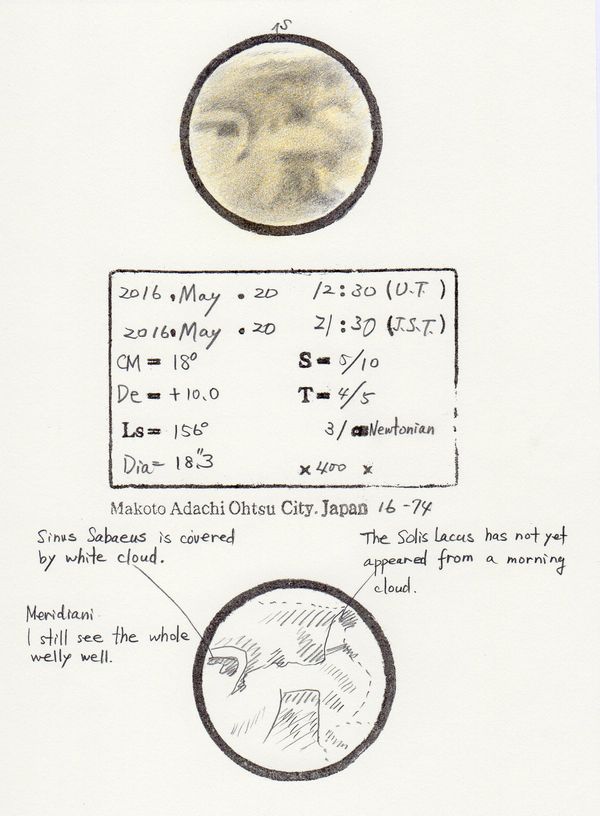 ↑S
2016. May. 20 12:30 (U.T.)
2016. May. 20 21:30 (J.S.T.)
CM = 18° S = 5/10
De = +10.0 T = 4/5
Ls = 156° 31 Newtonian
Dia = 18".3 ×400 ×
Makoto Adachi Ohtsu City. Japan 16-74
Sinus Sabaeus is covered
by white cloud.
The Solis Lacus has not yet
appeared from a morning
cloud.
Meridiani
I still see the whole
welly well.